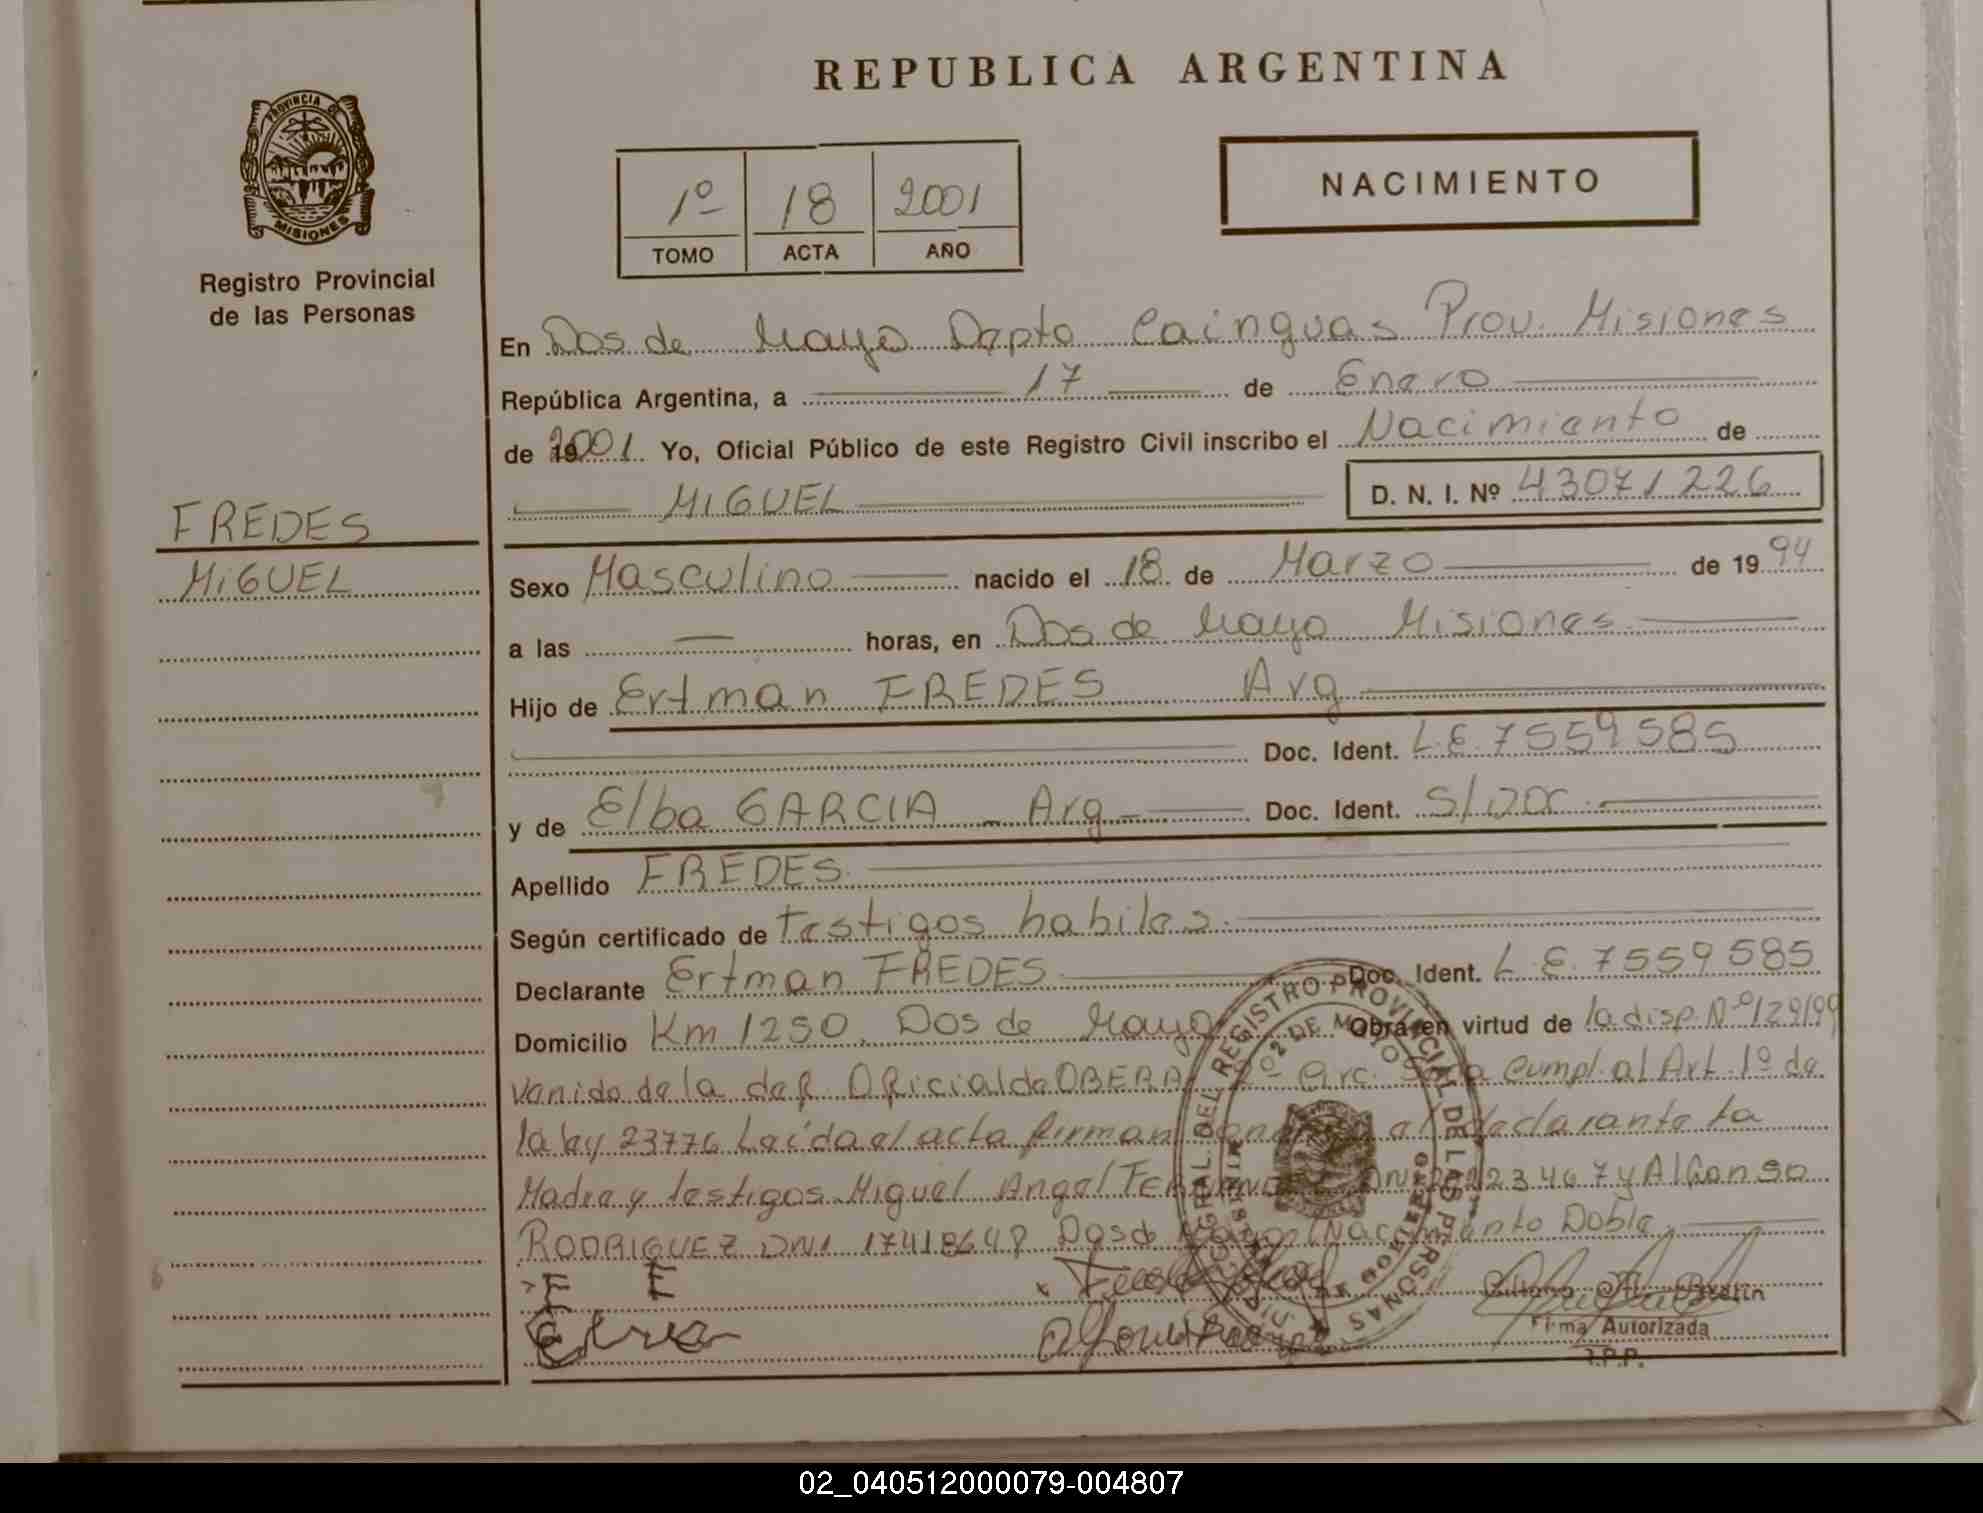 REPUBLICA ARGENTINA
PROVINCIA DE
MISIONES
Registro Provincial
de las Personas
NACIMIENTO
1º 18 2001
TOMO ACTA AÑO
En Dos de Mayo Depto Cainguas Prov. Misiones
República Argentina, a 17 de Enero
de 2001 Yo, Oficial Público de este Registro Civil inscribo el Nacimiento de
MIGUEL D. N. I. Nº 43071226
FREDES
MIGUEL
Sexo Masculino nacido el 18 de Marzo de 1994
a las — horas, en Dos de Mayo Misiones
Hijo de Ertman FREDES Arg
Doc. Ident. L.E. 7559585
y de Elba GARCIA - Arg - Doc. Ident. S/Doc.
Apellido FREDES
Según certificado de testigos habiles.
Declarante Ertman FREDES Doc. Ident. L.E. 7559585
Domicilio Km 1250 Dos de Mayo Obra en virtud de la disp. Nº 129/99
venido de la def. Oficial de OBERA 2º Circ. Cumpl. al Art. 1º de
la ley 23776 Leída el acta firman el declarante la
Madre y testigos Miguel Angel y Alfonso
RODRIGUEZ DNI 17418648 Dos de Mayo Nacimiento Doble
F E
Firma Autorizada
J.P.P.
REGISTRO PROVINCIAL DE LAS PERSONAS
2 DE MAYO
02_040512000079-004807